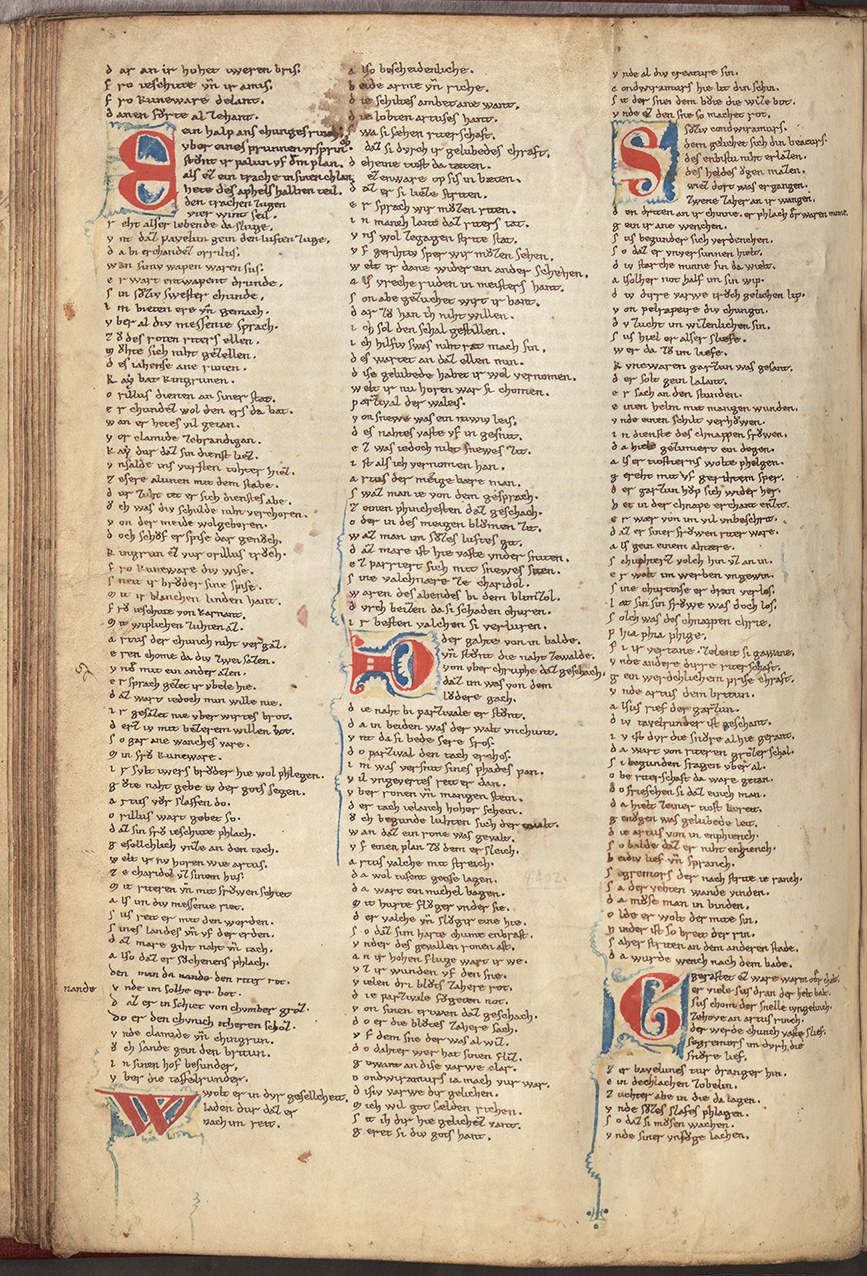 dar an ir hohet weren bris.
fro ieschute vñ ir amis.
fro kuneware delant.
danen fůrte al zehant.
Ein halp ans chunges rinch,
vber eines prunnen vrsprinc
stůnt ir palun vf dem plan.
als ez ein trache in sinen chlan
hete des aphels halben teil.
den trachen zugen
vier wint seil.
reht alser lebende da fluge.
vnt daz pavelun gein den luften zuge.
da bi erchandez orrilus.
wan siniv wapen waren sus.
er wart entwapent drunde.
sin sůziv swester chunde.
im bieten ere vñ gemach.
vber al div messenie sprach.
zů des roten riters ellen.
můhte sich niht gezellen.
des iahense ane runen.
kaẏ bat kingrunen.
orillus dienen an siner stat.
er chundez wol den ers da bat.
wan er hetes vil getan.
vor clamide ze brandigan.
kaẏ dur daz sin dienst liez.
vnsælde ins vursten tohter hiez.
ze sere alunen mit dem stabe.
dur zuht tet er sich dienstes abe.
ŏch was div schulde niht verchoren.
von der meide wolgeboren.
doch schůf er spise dar genůch.
kingrun ez vur orillus trůch.
fro kuneware div wise.
sneit ir brůder sine spise.
mit ir blanchen linden hant.
frŏ ieschute von karnant.
mit wiplichen zuhten az.
artus der chunch niht vergaz.
eren chome da div zwei sazen.
vnd mit ein ander azen.
er sprach gezet ir vbele hie.
daz wart iedoch min wille nie.
ir gesazet nie vber wirtes brot.
derz iv mit bezerem willen bot.
so gar ane wanches vare.
min frŏ kuneware.
ir sylt iwers brůder hie wol phlegen.
gůte naht gebe iv der gots segen.
artus vůr slaffen do.
orillus wart gebet so.
daz sin frŏ ieschute phlach.
geselleclich vnze an den tach.
welt ir nv horen wie artus.
ze charidol vz sinem hus.
mit riteren vñ mit frŏwen schiet
als im div messenie riet.
sus reit er mit den werden.
sines landes vñ vf der erden.
daz mare giht naht vñ tach.
also daz er sůchenes phlach.
den man da nande den riter rot.
nande
vnde im solhe ere bot.
daz er in schiet von chumber groz.
do er den chunch itheren schoz.
vnde clamide vñ chingrun.
ŏch sande gein den britun.
in sinen hof besunder,
vber die taffelrunder.
Wolt er in dur gesellcheit,
laden dur daz er
nach im reit.
also bescheidenliche.
beide arme vñ riche.
die schiltes ambet ane want.
die lobten artuses hant.
swa si sehen riterschaft.
daz si dyrch ir gelubedes chraft.
decheine tiost da tæten.
ez enware op sis in bæten.
daz er si lieze striten.
er sprach wir můzen riten.
in manch lant daz riters tat.
vns wol ze gagen strite stat.
vf gerihtiv sper wir můzen sehen.
welt ir dane wider ein ander schehen.
als vreche ruden in meisters hant.
son abe gezuchet wirt ir bant.
dar zů han ih niht willen.
ich sol den schal gestillen.
ich hilf iv swas niht rat mach sin.
des wartet an daz ellen min.
dise gelubede habet ir wol vernomen.
welt ir nu horen war si chomen.
parzival der waleis.
von snewe was ein niwiv leis.
des nahtes vaste vf in gesnit.
ez was iedoch niht snewes zit.
ist als ich vernomen han.
artus der meige bære man.
swaz man ie von dem gesprach.
ze einen phinchesten daz geschach.
oder in des meigen blůmen zit.
waz man im sůzes luftes git.
daz mare ist hie vaste vnder sniten.
ez parriert sich mit snewes siten.
sine valchnære ze charidol.
waren des abendes bi dem blimizol.
dyrch beizen da si schaden churen.
ir besten valchen si verluren.
Der gahte von in balde.
vñ stůnt die naht ze walde.
von vber chruphe daz geschach,
daz im was von dem
lůdere gach.
die naht bi parzivale er stůnt.
da in beiden was der walt vnchunt.
vnt da si bede sere fros.
do parzival den tach erchos.
im was versnit sines phades pan.
vil vngevertes reit er dan.
vber ronen vñ mangen stein.
der tach ie lanch hoher schein.
ŏch begunde luhten sich der walt.
wan daz ein rone was gevalt.
vf einen plan zů dem er sleich.
artus valche mit streich.
da wol tusent gense lagen.
da wart ein michel bagen.
mit hurte flŏger vnder sie.
der valche vñ slůgir eine hie.
so daz sim harte chume enbrast.
vnder des gevallen ronen ast.
an ir hohen fluge wart ir we.
vz ir wunden vf den sne.
vielen dri blůts zahere rot.
die parzivale fůgeten not.
von sinen triwen daz geschach.
do er die blůtes zahere sach.
vf dem sne der was al wiz.
do dahter wer hat sinen fliz.
gewant an dise varwe clar.
condwiramurs ia mach vur war.
disiv varwe dir gelichen.
mich wil got sælden richen.
sit ih dir hie gelichez vant.
geret si div gots hant.
vnde al div creature sin.
condwiramurs hie lit din schin.
sit der snen dem blůte die wize bot.
vnde ez den sne so machet rot.
Sůziv condwiramurs.
dem gelichet sich din beacurs.
des enbistu niht erlazen.
des heldes ŏgen mazen.
wiez dort was ergangen.
zwene zaher an ir wangen.
den dritten an ir chinne. er phlach der waren minne.
gein ir ane wenchen.
sus begunder sich verdenchen.
so daz er vnversunnen hielt.
div starche minne sin da wielt.
als solher not half im sin wip.
div dirre varwe trůch gelichen lip.
von pelrapeire div chungin.
div zuht im witzenlichen sin.
sus hiel er alser sliefe.
wer da zů im liefe.
kvnewaren garzun was gesant.
der solt gein lalant.
er sach an den stunden.
einen helm mit mangen wunden.
vnde einen schilt verhŏwen.
in dienste des chnappen frŏwen.
da hielt gezimiert ein degen.
als er tiostierns wolte phelgen.
gereht mit vf gerihtem sper.
der garzun hůp sich wider her.
het in der chnape erchant enzit.
er war von im vil vnbeschrit.
daz er siner frŏwen riter ware.
als gein einem ahtære.
schuphterz volch hin vz an in.
er wolt im werben vngewin.
sine churtosie er dran verlos.
lat sin sin frŏwe was doch los.
solch was des chnappen chrie.
phia phia phige.
fi ir vertane. zelent si gawane.
vnde andere dirre riterschaft.
gein werdechlichem prise chraft.
vnde artus den britun.
alsus rief der garzun.
div tavelrunder ist geschant.
iv ist dyr die snůre al hie gerant.
da wart von riteren grůzer schal.
si begunden fragen vber al.
obe riterschaft da ware getan.
do frieschen si daz einich man.
da hielt ze einer tiost bereit.
genůgen was gelubede leit.
die artus von in enphiench.
so balde daz er niht engiench.
beidiv lief vñ spranch.
segremors der nach strite ie ranch.
swa der vehten wande vinden.
da můse man in binden.
older er wolt der mite sin.
ninder ist so breit der rin.
saher striten an dem anderen stade.
da wurde wench nach dem bade.
Getastet ez ware warm oder chalt.
er viele sus dran der helt balt.
sus chom der snelle iungelinch.
ze hove an artus rinch.
der werde chunch vaste slief.
segremors im dyrh die
snůre lief.
zer pavelunes tur dranger hin.
ein dechlachen zobelin.
zuchter abe in die da lagen.
vnde sůzes slafes phlagen.
so daz si můsen wachen.
vnde siner vnfůge lachen.